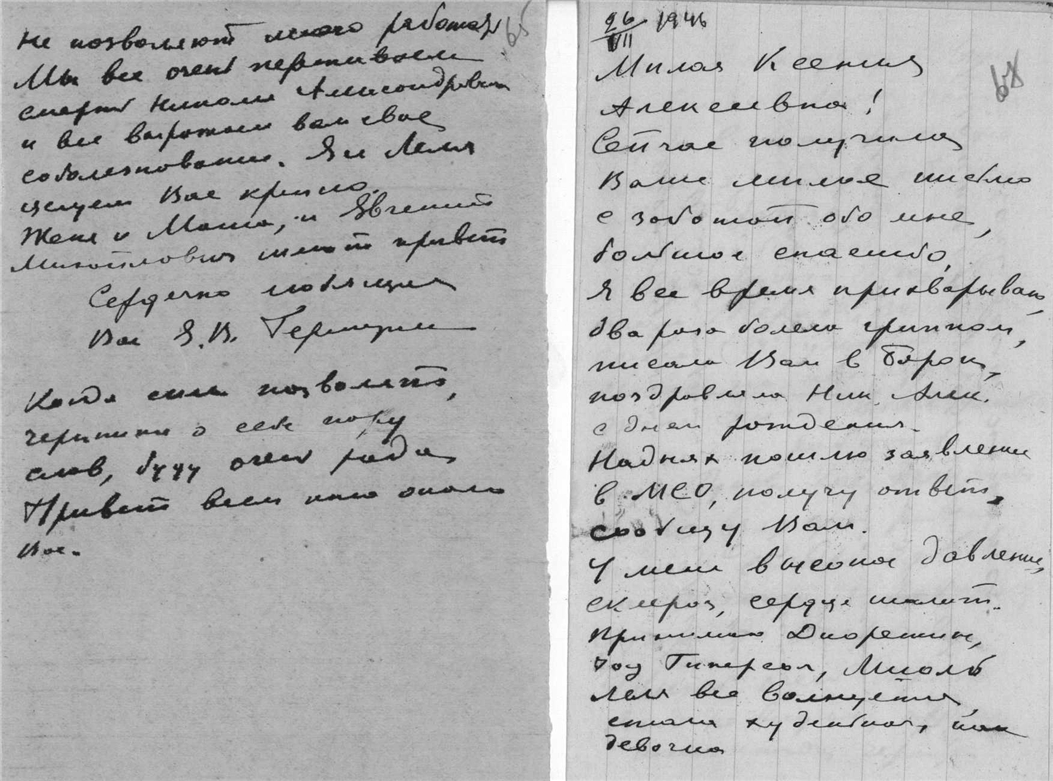 65
не позволяют много работать
Мы все очень переживаем
смерть Николая Александровича
и все выражаем вам свое
соболезнование. Я и Леля
целуем Вас крепко.
Женя и Маша, и Евгений
Михайлович шлют привет
Сердечно любящая
Вас Е.В. Гермуш
Когда силы позволят,
черкните о себе пару
слов, буду очень рада
Привет всем кто около
Вас.
26/VII 1946
68
Милая Ксения
Алексеевна!
Сейчас получила
Ваше милое письмо
с заботой обо мне,
большое спасибо,
Я все время прихварываю,
два раза болела гриппом,
писала Вам в Борок,
поздравляла Ник. Алек.
с днем рождения.
На днях пошлю заявление
в МСО, получу ответ,
сообщу Вам.
У меня высокое давление,
склероз, сердце шалит.
Принимаю Диоретин,
Иод Гиперсол,
Леля все волнуется,
стала худенькая, как
девочка